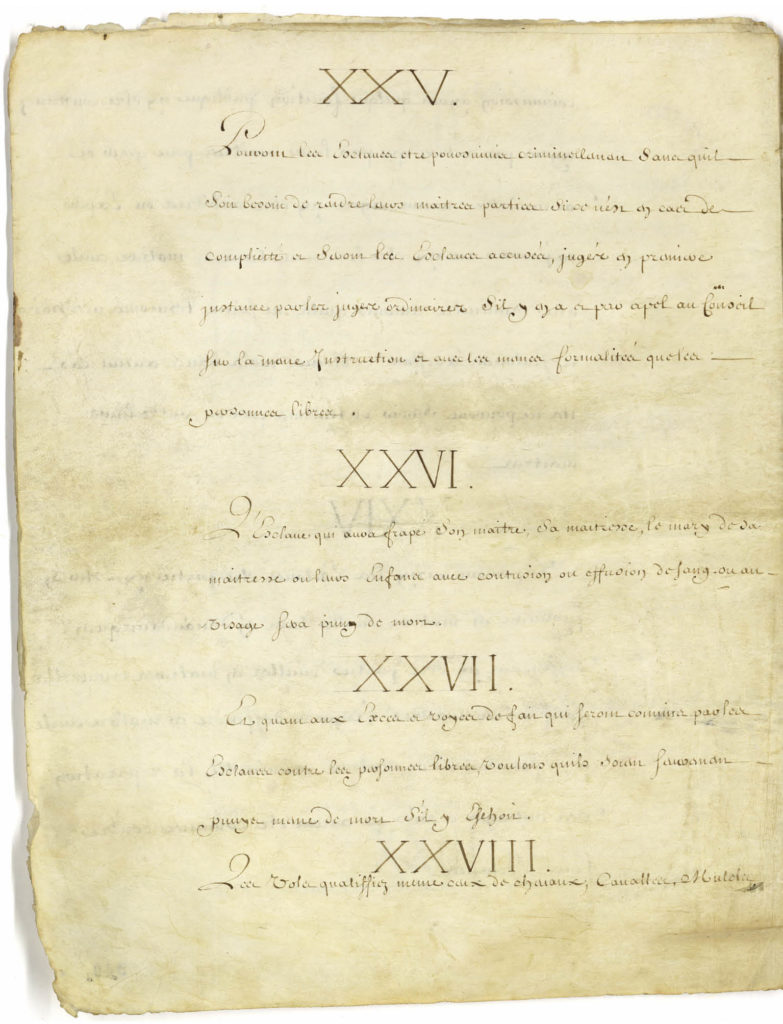 XXV.
Pouront les Esclaues etre poursuiuis criminellement Sans quil
Soit besoin de rendre leurs maitres parties Si ce n'est en cas de
complicité et Seront les Esclaues accusés, jugés en premiere
instance par les juges ordinaires S'il y en a et par apel au Conseil
sur la meme Instruction et auec les memes formalités que les
personnes libres.
XXVI.
L'Esclaue qui aura frapé Son maitre, Sa maitresse, le mary de sa
maitresse ou leurs Enfans auec contusion ou effusion de sang ou au
Visage sera puny de mort.
XXVII.
Et quant aux Excés et voyes de fait qui seront commis par les
Esclaues contre les personnes libres, voulons quils soient seuerement
punys meme de mort S'il y Echoit.
XXVIII.
Les Vols qualiffiez meme ceux de cheuaux, Caualles, Mulets